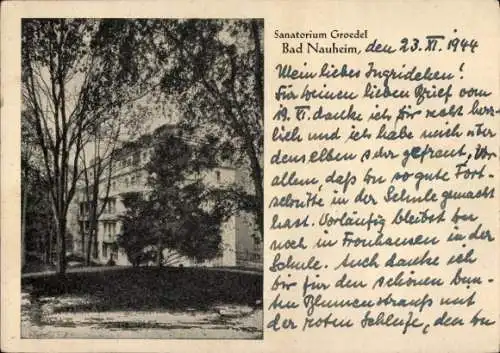 Sanatorium Groedel
Bad Nauheim, den 23. XI. 1944
Mein liebes Ingridchen!
Für Deinen lieben Brief vom
19. XI. danke ich Dir recht herz-
lich und ich habe mich über
denselben sehr gefreut. Vor
allem, daß Du so gute Fort-
schritte in der Schule gemacht
hast. Vorläufig bleibst Du
noch in Fronhausen in der
Schule. Auch danke ich
Dir für den schönen bun-
ten Blumenstrauß mit
der roten Schleife, den Du